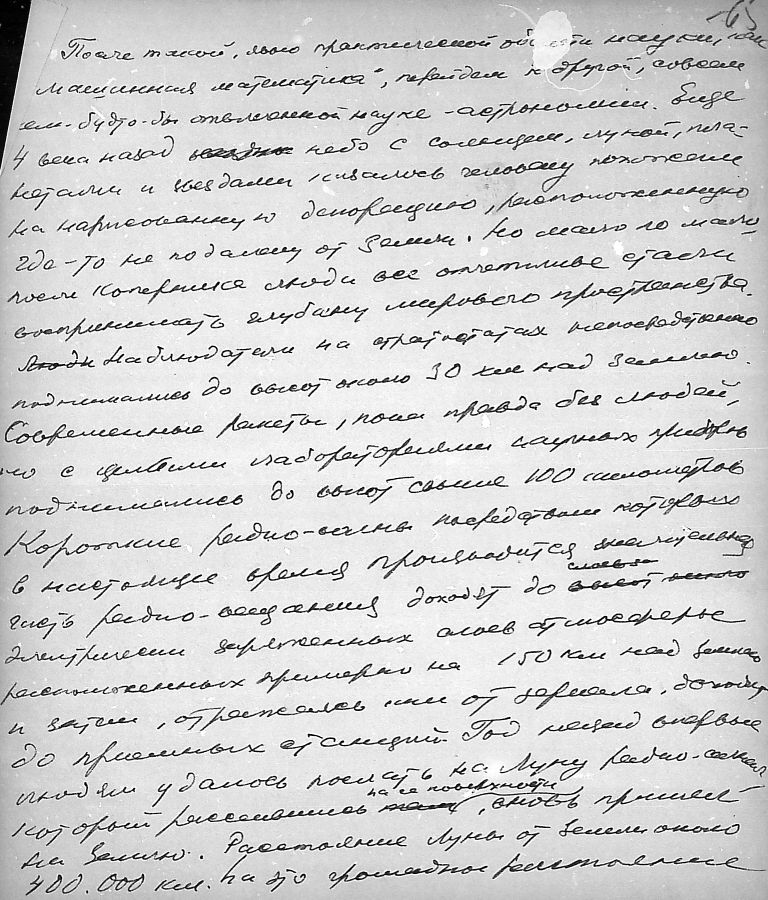 65
После такой, явно практической области науки, как
"машинная математика", перейдем к другой, совсем
как-будто-бы отвлеченной науке - астрономии. Еще
4 века назад небо с солнцем, луной, пла-
нетами и звездами казалось человеку похожим
на нарисованную декорацию, расположенную
где-то не подалеку от Земли. Но мало по малу
после Коперника люди все отчетливее стали
воспринимать глубину мирового пространства.
Люди Наблюдатели на стратостатах непосредственно
поднимались до высот около 30 км над Землею.
Современные ракеты, пока правда без людей,
но с целыми лабораториями научных приборов
поднимались до высот свыше 100 километров
Короткие радио-волны посредством которых
в настоящее время производится значительная
слоев
часть радио-вещания доходят до высот около
электрически заряженных слоев атмосферы
расположенных примерно на 150 км над Землею
и затем, отражаясь как от зеркала, доходят
до приемных станций. Год назад впервые
людям удалось послать на Луну радио-сигнал
на ее поверхности
который рассеявшись, вновь пришел
на Землю. Расстояние Луны от Земли около
400.000 км. На это громадное расстояние